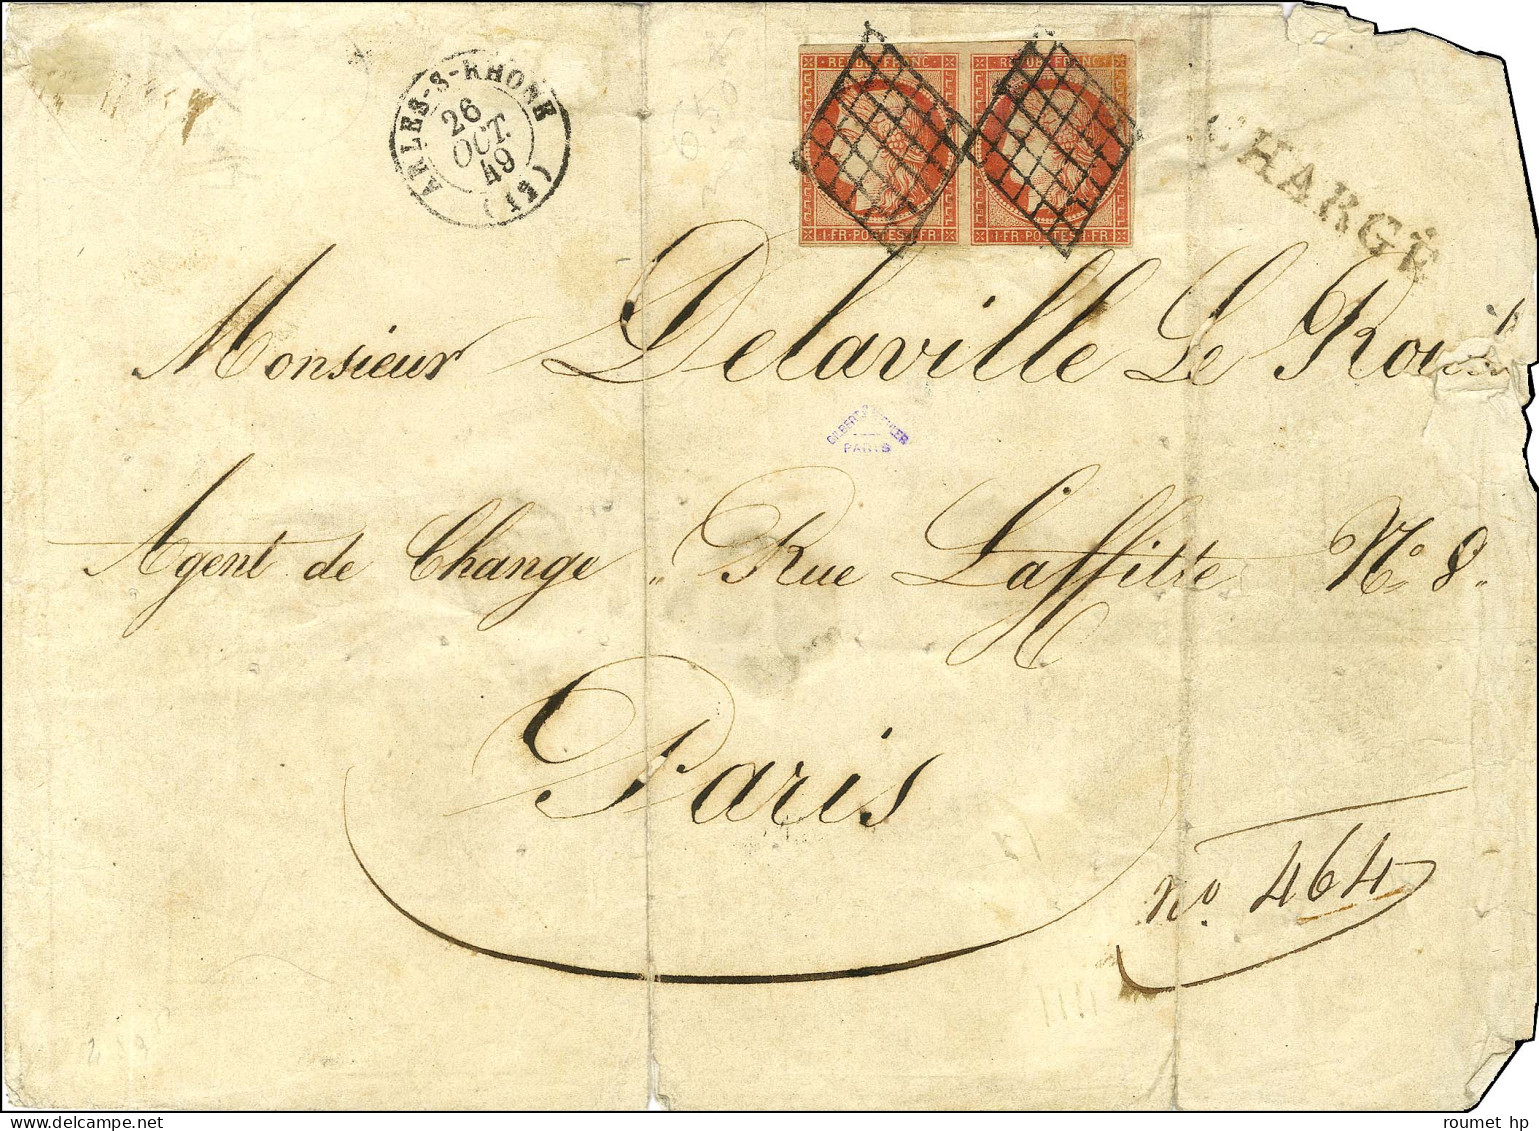 ARLES-S-RHONE
26
OCT.
49
(12)
REPUB. FRANC. REPUB. FRANC.
1·FR·POSTES·1·FR· 1·FR·POSTES·1·FR·
CHARGÉ
Monsieur Delaville Le Roulx
GILBERT &
PARIS
Agent de Change „ Rue Laffitte Nº 8„
Paris
nº. 464
roumet hp